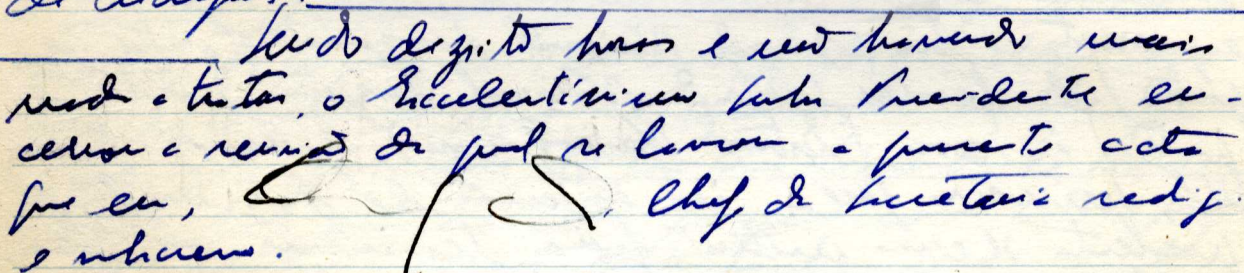 Sendo dezoito horas e não havendo mais
nada a tratar, o Excelentíssimo Senhor Presidente en-
cerrou a reunião da qual se lavrou a presente acta
que eu, Chefe da Secretaria redigi
e subscrevo.